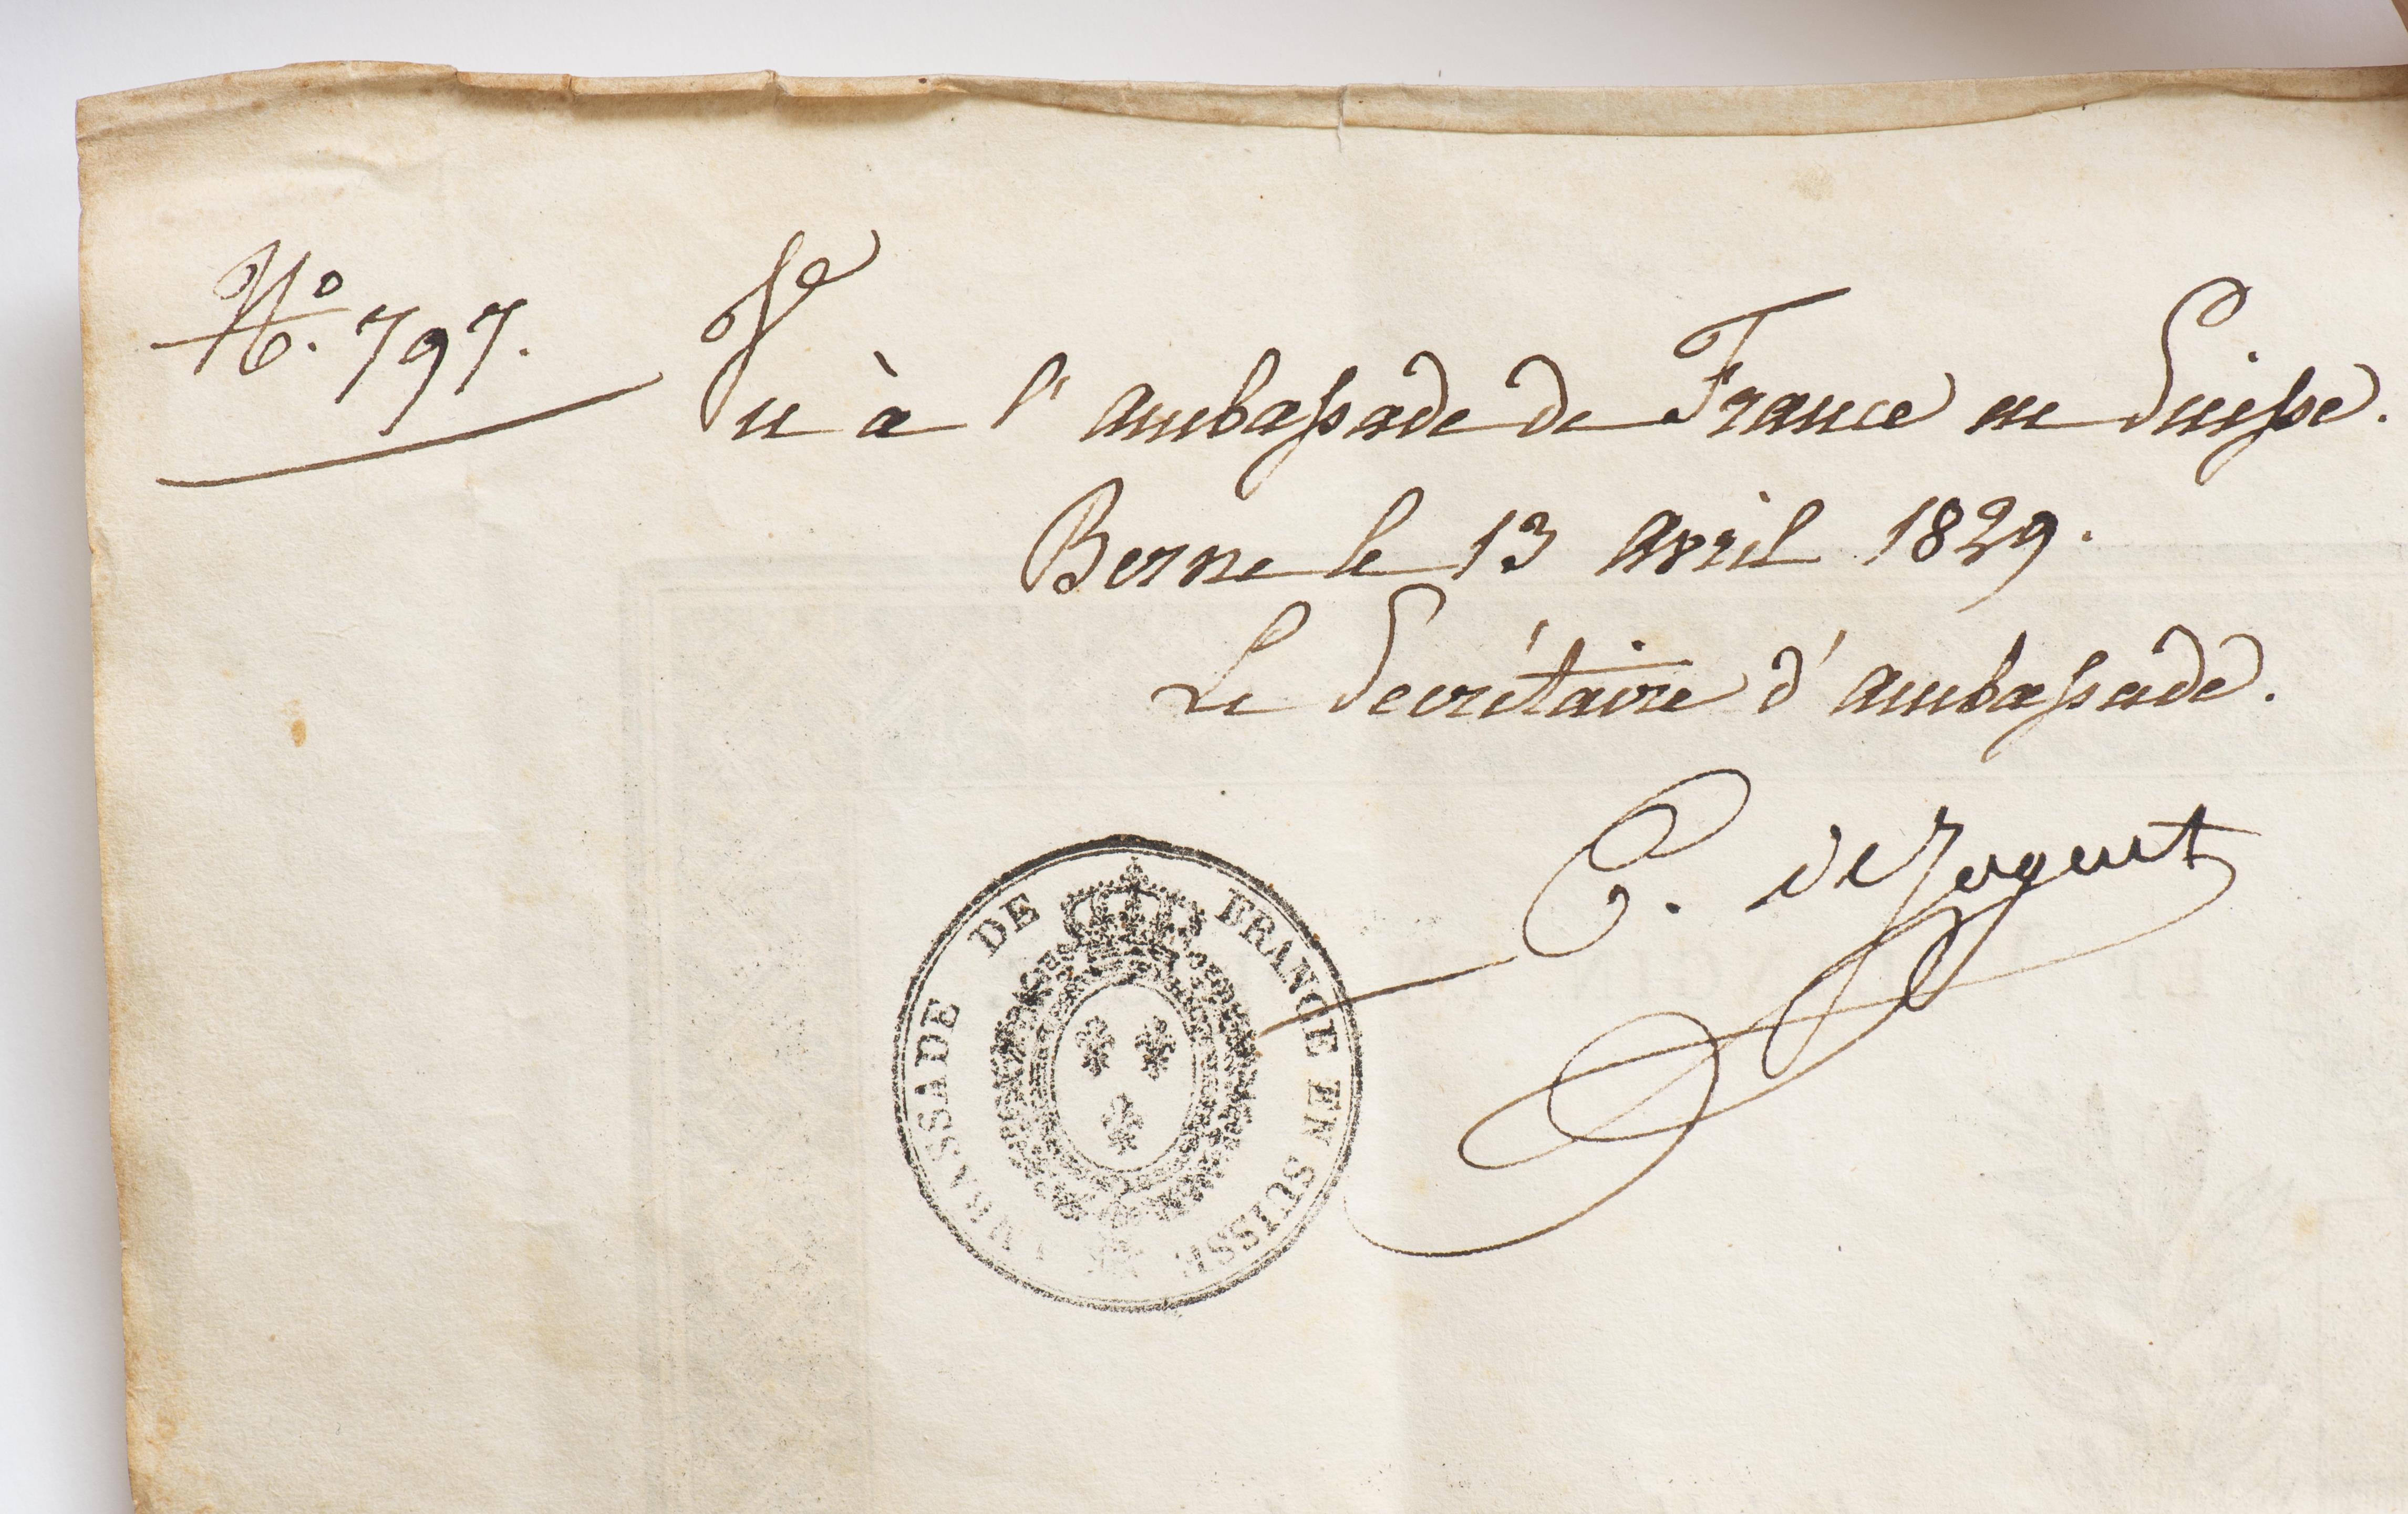 No. 797.
Vu à l'ambassade de France en Suisse.
Berne le 13 avril 1829.
Le Secrétaire d'ambassade.
C. de
AMBASSADE DE FRANCE EN SUISSE